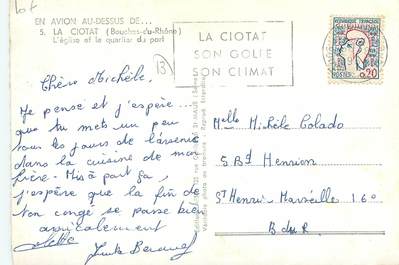 EN AVION AU-DESSUS DE...
5. LA CIOTAT (Bouches-du-Rhône)
L'église et le quartier du port
13
LA CIOTAT
SON GOLFE
SON CLIMAT
REPUBLIQUE FRANCAISE
POSTES
0,20
Chère Michèle,
Je pense et j'espère...
que tu mets un peu
tous les jours de l'arsenic
dans la cuisine de mon
frère - Mis à part ça,
j'espère que la fin de
ton congé se passe bien
amicalement
Melle Michèle Colado
5 Bd Henrion
St Henri-Marseille 16°
B du R.